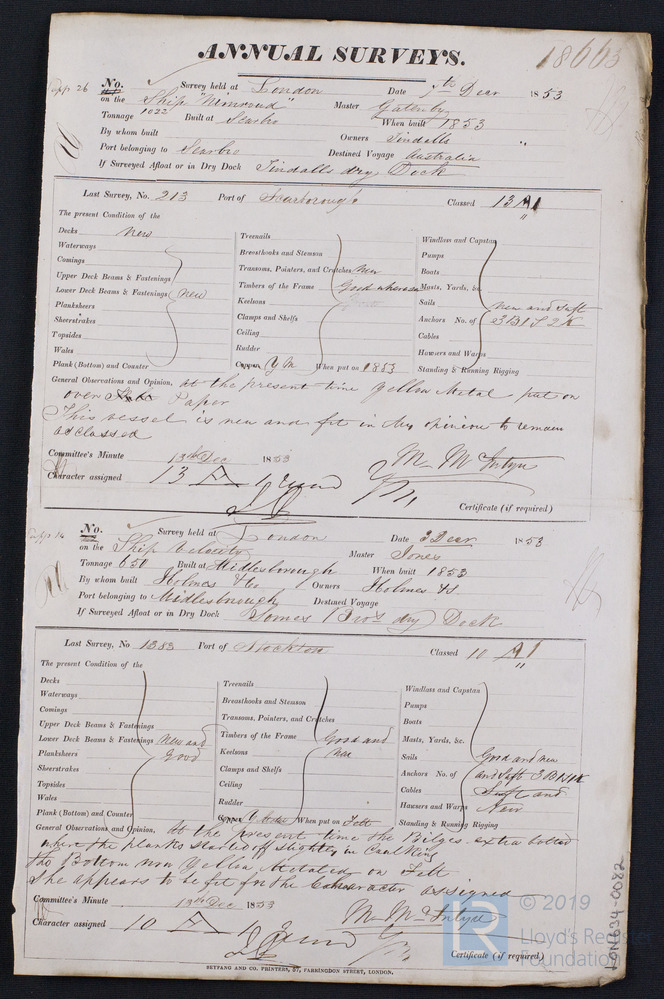 ANNUAL SURVEYS.
18663
No. Survey held at London Date 7th Decr 1853
on the Ship "Nimroud" Master Gatenby
Tonnage 1022 Built at Scarbro When built 1853
By whom built Owners Tindalls
Port belonging to Scarbro Destined Voyage Australia
If Surveyed Afloat or in Dry Dock Tindalls dry Dock
Last Survey, No. 213 Port of Scarborough Classed 13 A1
The present Condition of the
Decks New
Waterways
Comings
Upper Deck Beams & Fastenings
Lower Deck Beams & Fastenings New
Planksheers
Sheerstrakes
Topsides
Wales
Plank (Bottom) and Counter
Treenails
Breasthooks and Stemson
Transoms, Pointers, and Crutches New
Timbers of the Frame Good where seen
Keelsons
Clamps and Shelfs
Ceiling
Rudder
Copper Y M When put on 1853
Windlass and Capstan
Pumps
Boats
Masts, Yards, &c.
Sails New and Suft
Anchors No. of 3 B 1 S 2 K
Cables
Hawsers and Warps
Standing & Running Rigging
General Observations and Opinion, At the present time Yellow Metal put on
over Paper
This vessel is new and fit in my opinion to remain
as classed
Committee's Minute 13th Dec 1853 M McIntyre
Character assigned 13 A 1
Certificate (if required)
No. Survey held at London Date 3 Decr 1853
on the Ship Velocity Master Jones
Tonnage 650 Built at Middlesborough When built 1853
By whom built Holmes & Co Owners Holmes &
Port belonging to Middlesborough Destined Voyage
If Surveyed Afloat or in Dry Dock Somes Bros dry Dock
Last Survey, No 1383 Port of Stockton Classed 10 A1
The present Condition of the
Decks
Waterways
Comings
Upper Deck Beams & Fastenings
Lower Deck Beams & Fastenings New and
Planksheers Good
Sheerstrakes
Topsides
Wales
Plank (Bottom) and Counter
Treenails
Breasthooks and Stemson
Transoms, Pointers, and Crutches
Timbers of the Frame Good and
Keelsons New
Clamps and Shelfs
Ceiling
Rudder
Copper When put on Felt
Windlass and Capstan
Pumps
Boats
Masts, Yards, &c.
Sails Good and new
Anchors No. of and Suft 3 B 1 S 1 K
Cables Suft and
Hawsers and Warps New
Standing & Running Rigging
General Observations and Opinion, At the present time the Bilges extra bolted
when the planks started off shortly in Caulking
the Bottom now Yellow Metaled on Felt
She appears to be fit for the Character assigned
Committee's Minute 13th Dec 1853 M McIntyre
Character assigned 10 A 1
Certificate (if required)
SEYFANG AND CO. PRINTERS, 57, FARRINGDON STREET, LONDON.
LON634-0082
© 2019
Lloyd's Register
Foundation